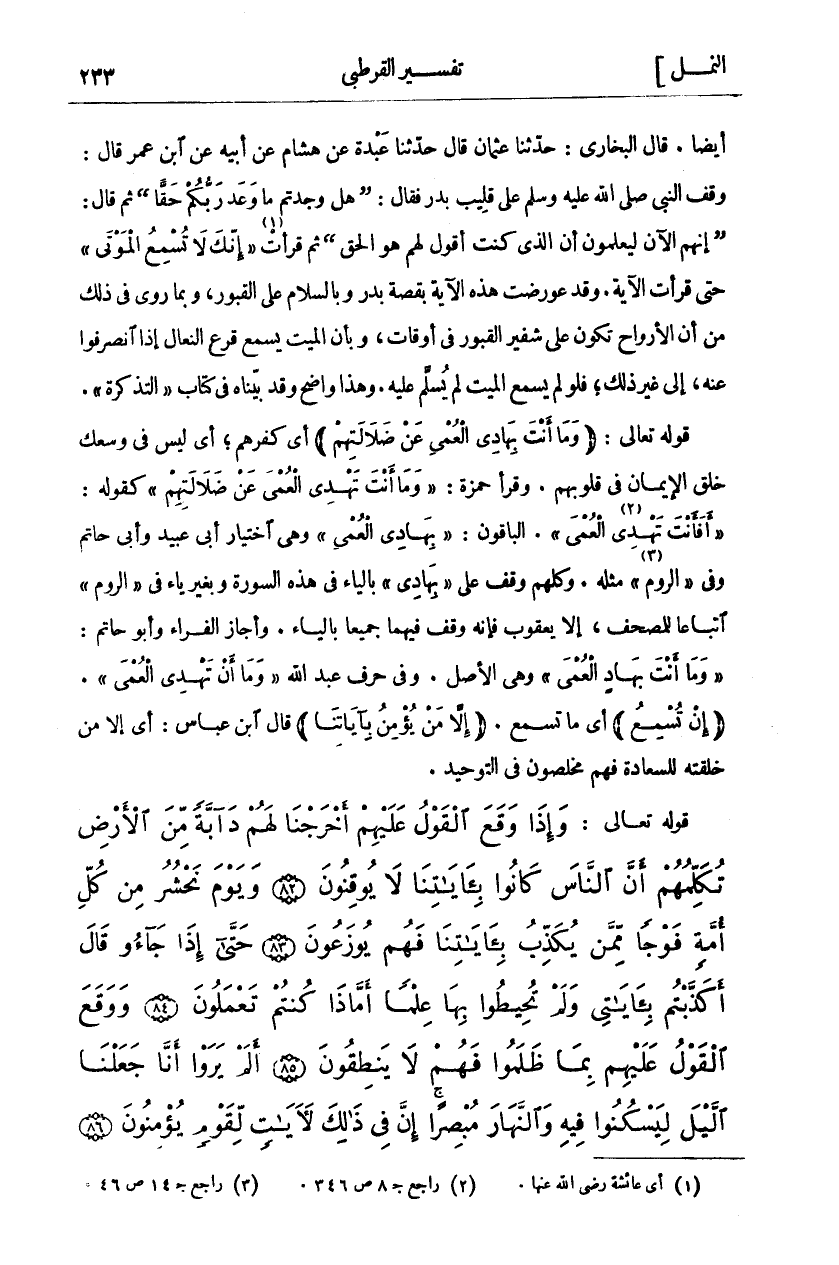 النمـل ] تفســير القرطبى ٢٣٣
أيضا . قال البخارى : حدّثنا عثمان قال حدّثنا عَبْدة عن هشام عن أبيه عن ٱبن عمر قال :
وقف النبي صلى الله عليه وسلم على قلِيب بدر فقال : ” هل وجدتم ما وَعَد رَبُّكُمْ حَقًّا “ ثم قال :
” إنهم الآن ليعلمون أن الذى كنت أقول لهم هو الحق “ ثم قرأتْ (١) « إِنَّكَ لَا تُسْمِعُ الْمَوْتَى »
حتى قرأت الآية . وقد عورضت هذه الآية بقصة بدر وبالسلام على القبور، وبما روى فى ذلك
من أن الأرواح تكون على شفير القبور فى أوقات ، وبأن الميت يسمع قرع النعال إذا ٱنصرفوا
عنه ، إلى غير ذلك ؛ فلو لم يسمع الميت لم يُسلَّم عليه . وهذا واضح وقد بيّناه فى كتاب « التذكرة » .
قوله تعالى : ﴿ وَمَا أَنْتَ بِهَادِى الْعُمْىِ عَنْ ضَلَالَتِهِمْ ﴾ أى كفرهم ؛ أى ليس فى وسعك
خلق الإيمـان فى قلوبهم . وقرأ حمزة : « وَمَا أَنْتَ تَهْـدِى الْعُمْىَ عَنْ ضَلَالَتِهِمْ » كقوله :
« أَفَأَنْتَ تَهْـدِى الْعُمْىَ (٢) » . الباقون : « بِهَـادِى الْعُمْىِ » وهى ٱختيار أبى عبيد وأبى حاتم
وفى « الروم (٣) » مثله . وكلهم وقف على « بِهَادِى » بالياء فى هذه السورة وبغير ياء فى « الروم »
ٱتبـاعا للصحف ، إلا يعقوب فإنه وقف فيهما جميعا باليـاء . وأجاز الفـراء وأبو حاتم :
« وَمَا أَنْتَ بِهَـادٍ الْعُمْىَ » وهى الأصل . وفى حرف عبد الله « وَمَا أَنْ تَهْـدِى الْعُمْىَ » .
﴿ إِنْ تُسْمِـعُ ﴾ أى ما تسـمع . ﴿ إِلَّا مَنْ يُؤْمِنُ بِآيَاتِنَـا ﴾ قال ٱبن عبـاس : أى إلا من
خلقته للسعادة فهم مخلصون فى التوحيد .
قوله تعـالى : وَإِذَا وَقَعَ ٱلْقَوْلُ عَلَيْهِمْ أَخْرَجْنَا لَهُمْ دَآبَّةً مِّنَ ٱلْأَرْضِ
تُكَلِّمُهُمْ أَنَّ ٱلنَّاسَ كَانُوا بِـَٔايَـٰتِنَا لَا يُوقِنُونَ ﴿٨٢﴾ وَيَوْمَ نَحْشُرُ مِن كُلِّ
أُمَّةٍ فَوْجًا مِّمَّن يُكَذِّبُ بِـَٔايَـٰتِنَا فَهُم يُوزَعُونَ ﴿٨٣﴾ حَتَّىٰٓ إِذَا جَآءُو قَالَ
أَكَذَّبْتُم بِـَٔايَـٰتِى وَلَمْ تُحِيطُوا بِهَا عِلْمًا أَمَّاذَا كُنتُمْ تَعْمَلُونَ ﴿٨٤﴾ وَوَقَعَ
ٱلْقَوْلُ عَلَيْهِم بِمَـا ظَلَمُوا فَهُـمْ لَا يَنطِقُونَ ﴿٨٥﴾ أَلَمْ يَرَوْا أَنَّا جَعَلْنَـا
ٱلَّيْلَ لِيَسْكُنُوا فِيهِ وَٱلنَّهَارَ مُبْصِرًا ۚ إِنَّ فِى ذَٰلِكَ لَـَٔايَـٰتٍ لِّقَوْمٍ يُؤْمِنُونَ ﴿٨٦﴾
(١) أى عائشة رضى الله عنها . (٢) راجع جـ ٨ ص ٣٤٦ . (٣) راجع جـ ١٤ ص ٤٦